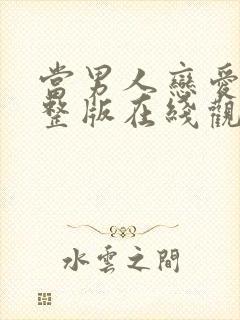 當男人戀愛
整版在綫觀
水雲之間